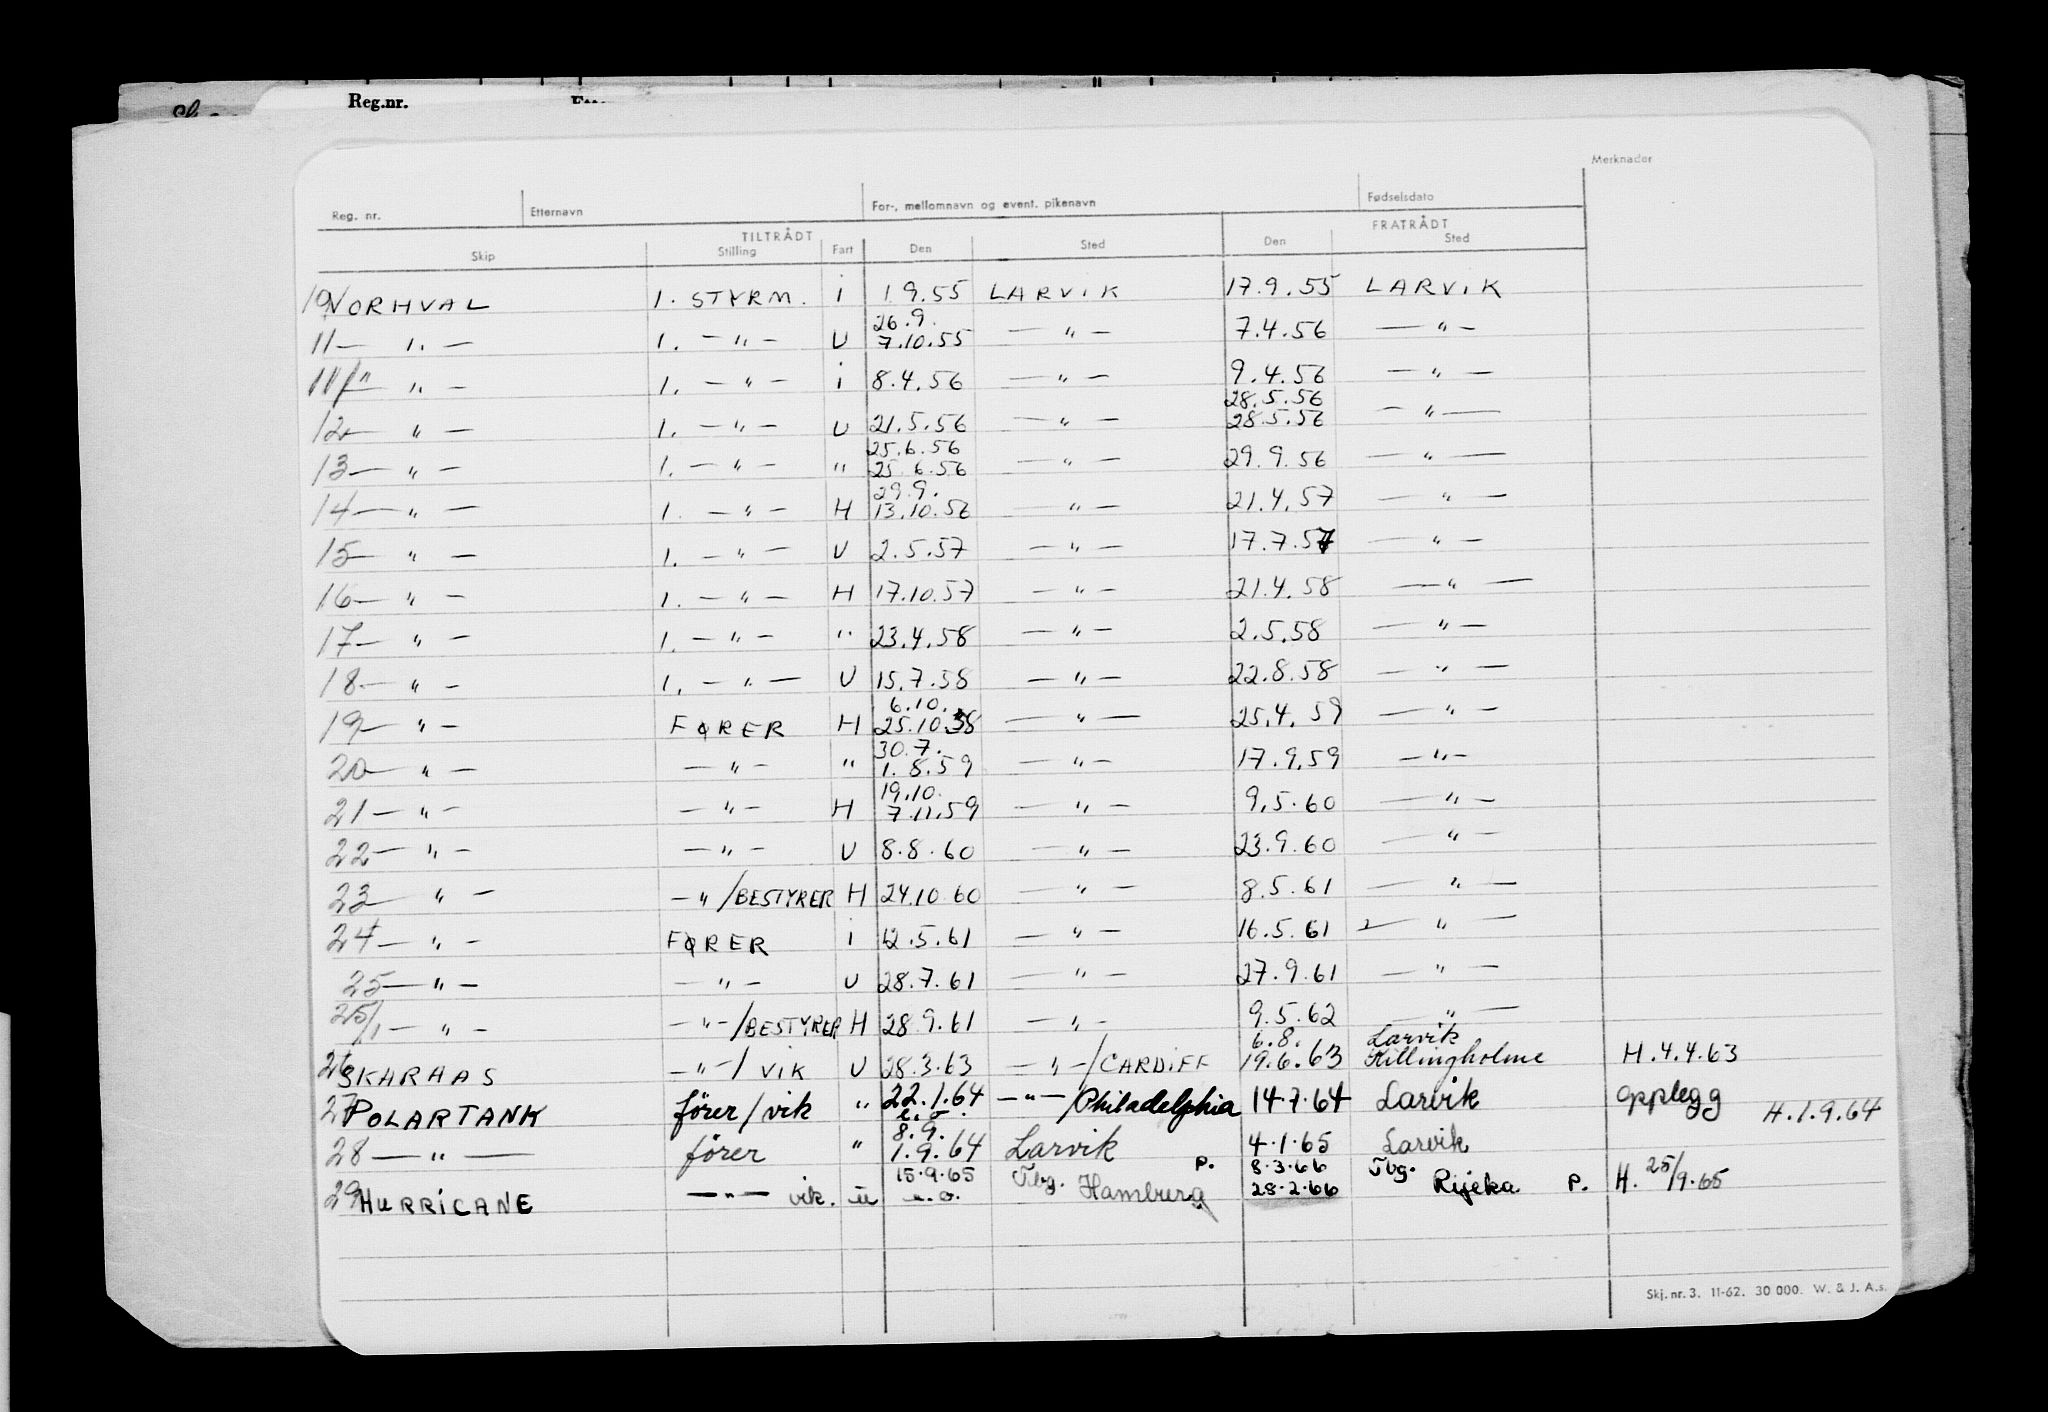 Reg.nr.
Merknader
Reg. nr. Etternavn For-, mellomnavn og event. pikenavn Fødselsdato
TILTRÅDT FRATRÅDT
Skip Stilling Fart Den Sted Den Sted
10 NORHVAL 1. STYRM. i 1.9.55 LARVIK 17.9.55 LARVIK
26.9.
11 — " — 1. — " — U 7.10.55 — " — 7.4.56 — " —
11/1 — " — 1. — " — i 8.4.56 — " — 9.4.56 — " —
28.5.56
12 — " — 1. — " — U 21.5.56 — " — 28.5.56 — " —
25.6.56
13 — " — 1. — " — " 25.6.56 — " — 29.9.56 — " —
29.9.
14 — " — 1. — " — H 13.10.56 — " — 21.4.57 — " —
15 — " — 1. — " — U 2.5.57 — " — 17.7.57 — " —
16 — " — 1. — " — H 17.10.57 — " — 21.4.58 — " —
17 — " — 1. — " — " 23.4.58 — " — 2.5.58 — " —
18 — " — 1. — " — U 15.7.58 — " — 22.8.58 — " —
6.10.
19 — " — FØRER H 25.10.58 — " — 25.4.59 — " —
30.7.
20 — " — — " — " 1.8.59 — " — 17.9.59 — " —
19.10.
21 — " — — " — H 7.11.59 — " — 9.5.60 — " —
22 — " — — " — U 8.8.60 — " — 23.9.60 — " —
23 — " — — " /BESTYRER H 24.10.60 — " — 8.5.61 — " —
24 — " — FØRER i 12.5.61 — " — 16.5.61 — " —
25 — " — — " — U 28.7.61 — " — 27.9.61 — " —
25/1 — " — — " —/BESTYRER H 28.9.61 — " — 9.5.62 — " —
6.8. Larvik
26 SKARAAS — " —/ VIK U 28.3.63 — " —/CARDIFF 19.6.63 Killingholme H.4.4.63
27 POLARTANK förer/vik " 22.1.64 — " —/Philadelphia 14.7.64 Larvik opplegg H.1.9.64
e.o.
8.9.
28 — " — förer " 1.9.64 Larvik 4.1.65 Larvik
15.9.65 Tbg. P. 8.3.66 Tbg.
29 HURRICANE — " — vik. u e.o. Hamburg 28.2.66 Rijeka P. H. 25/9.65
Skj. nr. 3. 11-62. 30 000. W. & J. A.s.